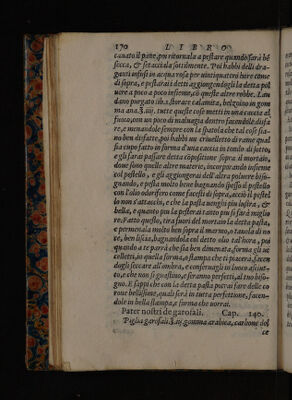 170 LIBRO
cauato il pane, poi ritornala a pestare quando sarà bẽ
secca, & setacciala sotilmente. Poi habbi delli dra-
ganti infusi in acqua rosa per uintiquatro hore come
di sopra, e pestarai i detti aggiongendogli la detta pol
uere a poco a poco insieme, cõ queste altre robbe. Lau
dano purgato lib.1. storace calamita, belzoino in gom
ma ana ℥.iiij. tutte queste cose metti in una caccia al
fuoco, con un poco di maluagia dentro facendole disfa
re, e menandole sempre con la spatola che tal cose sia-
no ben disfatte, poi habbi un criuelletto di rame qual
sia cupo fatto in forma d'una caccia in tondo di sotto,
e gli farai passare detta cõpositione sopra il mortaio,
doue sono quelle altre materie, incorporando insieme
col pestello, e gli aggiongerai dell'altra poluere biso-
gnando, e pesta molto bene bagnando spesso il pestello
con l'olio odorifero come facesti di sopra, acciò il pestel
lo non s'attacchi, e che la pasta uenghi piu lustra, &
bella, e quanto piu la pesterai tanto piu sarà meglio
re. Fatto questo, tira fuori del mortaio la detta pasta,
e permenala molto ben sopra il marmo, o tauola di no
ce, ben liscia, bagnandola col detto olio tal'hora, poi
quando a te parrà che sia ben dimenata, forma gli uc
celletti, in quella forma, o stampa che ti piacerà, facen
dogli seccare all'ombra, e conseruagli in luoco asciut-
to, e che non si guastino, e saranno perfetti, al tuo biso-
gno. E sappi che con la detta pasta potrai fare delle co
rone bellissime, quali serà in tutta perfettione, facen-
dole in bella stampa, e forma che uorrai.
Pater nostri de garofali. Cap. 140.
Piglia garofali ℥.iij. gomma arabica, carbone del
ce